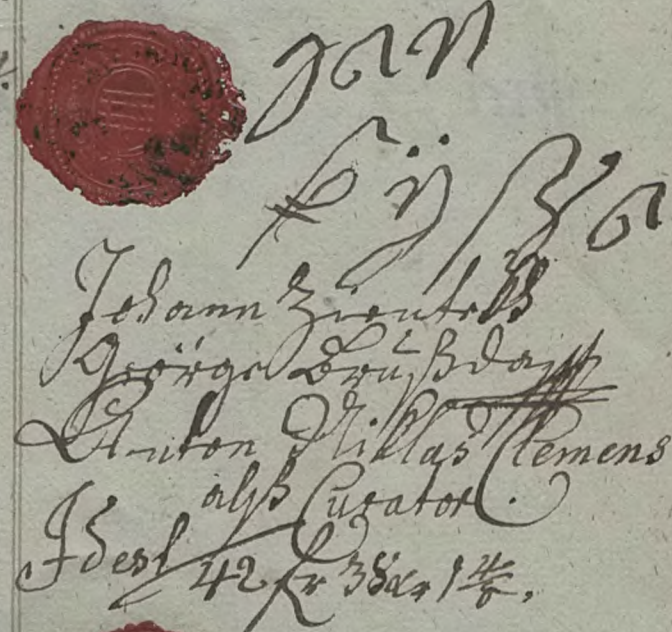 Jan
Johann Zientek
George Bruß
Anton Niklas Clemens
alß Curator.
Id est 42 fr 38 xr 1 4/8.